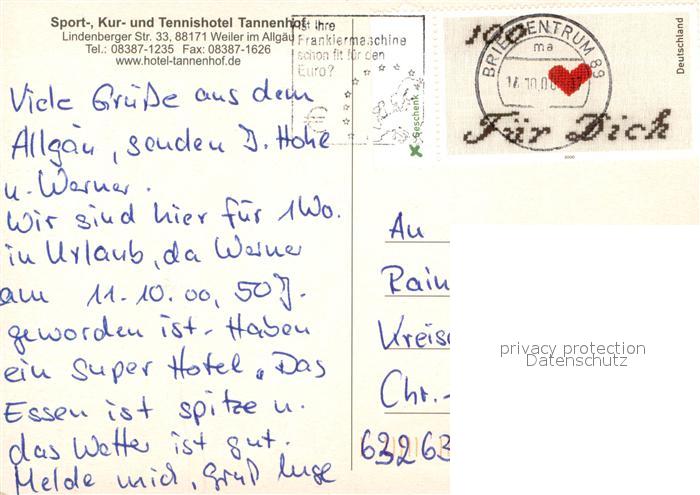 Sport-, Kur- und Tennishotel Tannenhof
Lindenberger Str. 33, 88171 Weiler im Allgäu
Tel.: 08387-1235 Fax: 08387-1626
www.hotel-tannenhof.de
Ist Ihre
Frankiermaschine
schon fit für den
Euro?
Geschenk
100
Deutschland
BRIEFZENTRUM 89
ma
Für Dich
2000
Viele Grüße aus dem
Allgäu, senden J. Hohe
u. Werner.
Wir sind hier für 1 Wo.
in Urlaub, da Werner
am 11.10.00, 50 J.
geworden ist. Haben
ein super Hotel. Das
Essen ist spitze u.
das Wetter ist gut.
Melde mich, Gruß Inge
An
Rain
Kreis
Chr.-
63263
privacy protection
Datenschutz